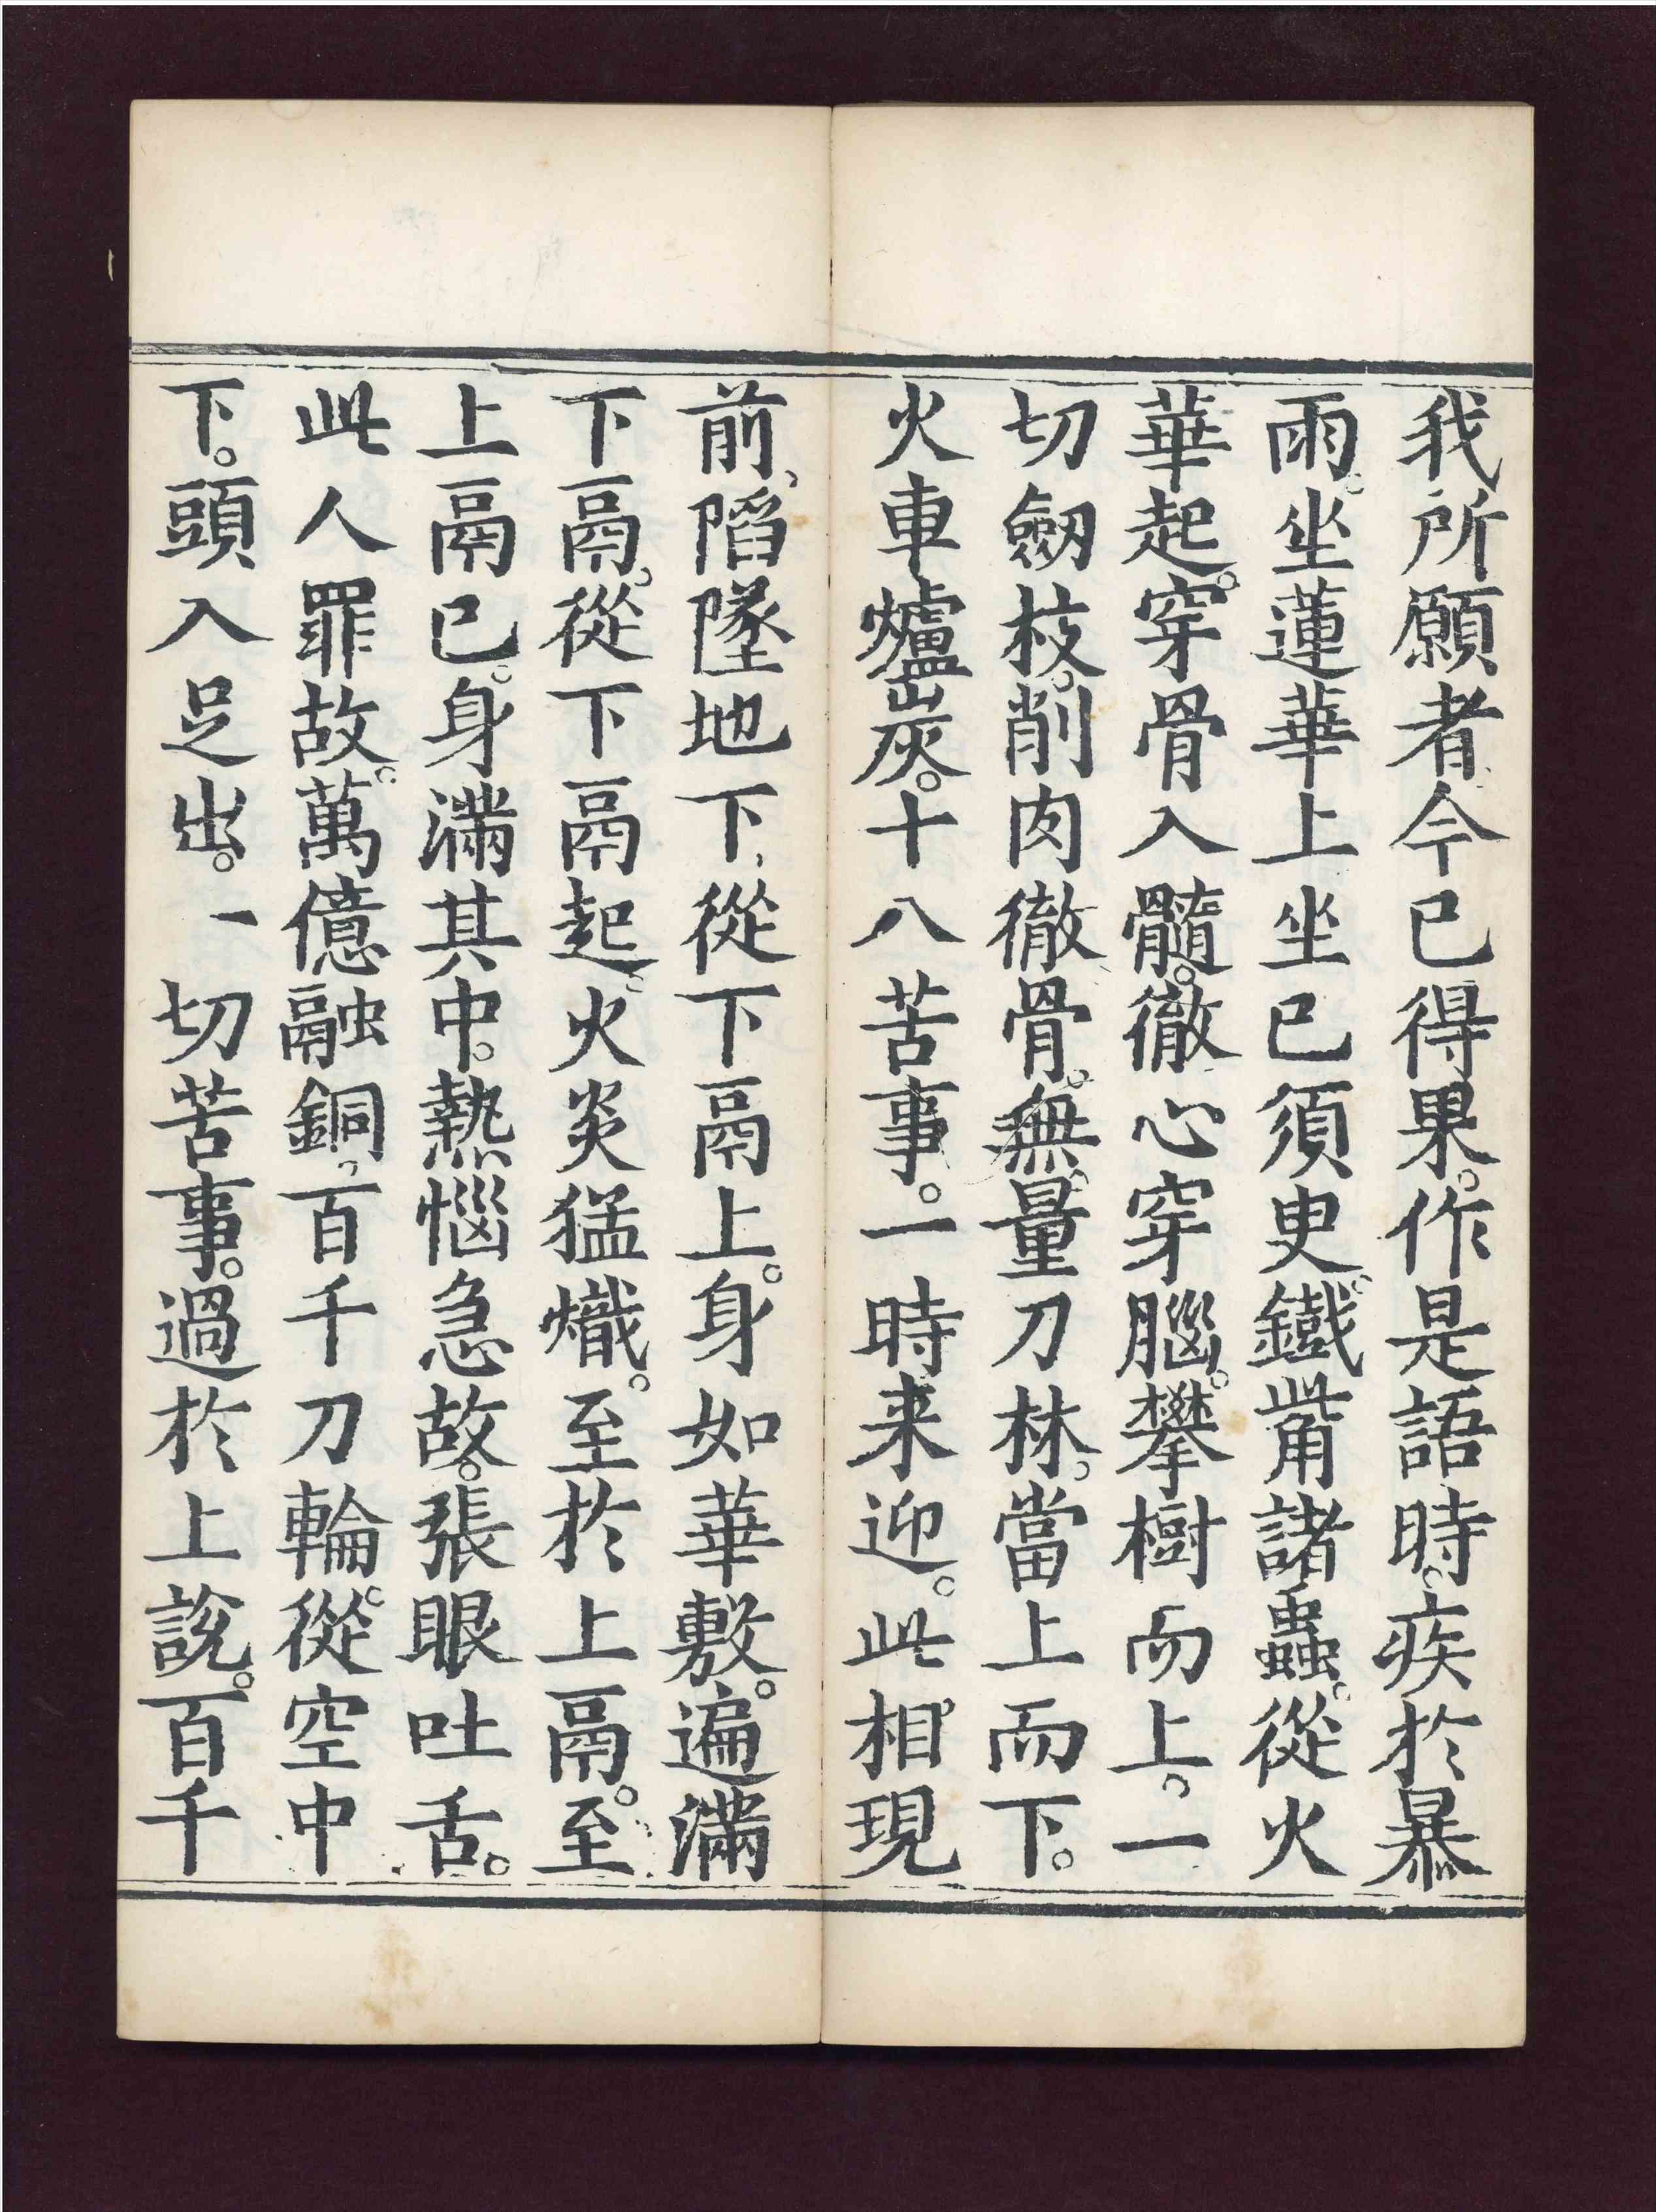 我所願者今已得果。作是語時。疾於暴
雨。坐蓮華上坐已須臾。鐵觜諸蟲。從火
華起。穿骨入髓。徹心穿腦。攀樹而上。一
切劒枝。削肉徹骨。無量刀林。當上而下。
火車爐炭。十八苦事。一時来迎。此相現
前、䧟墜地下、從下鬲上。身如華敷。遍滿
下鬲。從下鬲起。火炎猛熾。至於上鬲。至
上鬲已。身滿其中。熱惱急故。張眼吐舌。
此人罪故。萬億融銅。百千刀輪。從空中
下。頭入足出。一切苦事。過於上說。百千